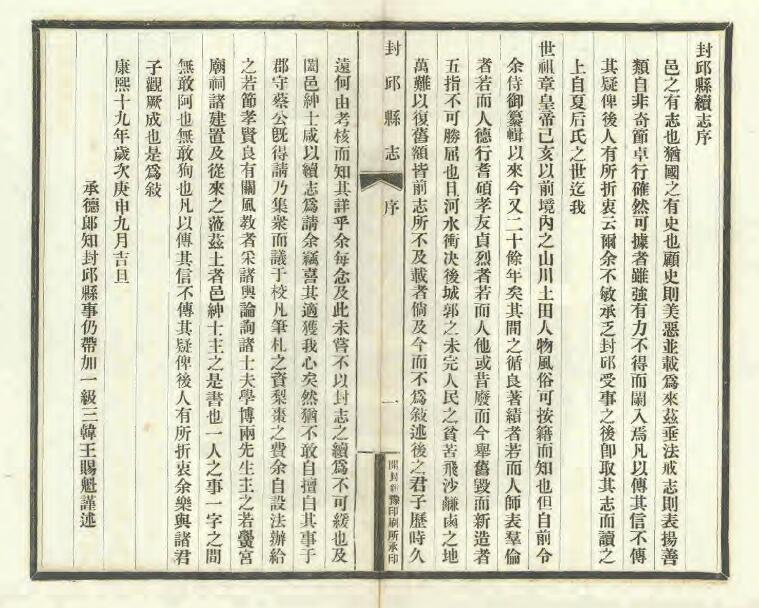 封邱縣續志序
邑之有志也猶國之有史也顧史則美惡並載爲來茲垂法戒志則表揚善
類自非奇節卓行確然可據者雖強有力不得而闌入焉凡以傳其信不傳
其疑俾後人有所折衷云爾余不敏承乏封邱受事之後卽取其志而讀之
上自夏后氏之世迄我
世祖章皇帝己亥以前境內之山川土田人物風俗可按籍而知也但自前令
余侍御纂輯以來今又二十餘年矣其間之循良著績者若而人師表羣倫
者若而人德行耆碩孝友貞烈者若而人他或昔廢而今舉舊毀而新造者
五指不可勝屈也且河水衝决後城郭之未完人民之貧苦飛沙鹻鹵之地
萬難以復舊額皆前志所不及載者倘及今而不爲敍述後之君子歷時久
封邱縣志
序
一
開封新豫印刷所承印
遠何由考核而知其詳乎余每念及此未嘗不以封志之續爲不可緩也及
闔邑紳士咸以續志爲請余竊喜其適獲我心矣然猶不敢自擅白其事于
郡守蔡公旣得請乃集衆而議于校凡筆札之資梨棗之費余自設法辦給
之若節孝賢良有關風教者采諸輿論詢諸士夫學博兩先生主之若黌宮
廟祠諸建置及從來之蒞茲土者邑紳士主之是書也一人之事一字之間
無敢阿也無敢狥也凡以傳其信不傳其疑俾後人有所折衷余樂與諸君
子觀厥成也是爲敍
康熙十九年歲次庚申九月吉旦
承德郎知封邱縣事仍帶加一級三韓王賜魁謹述